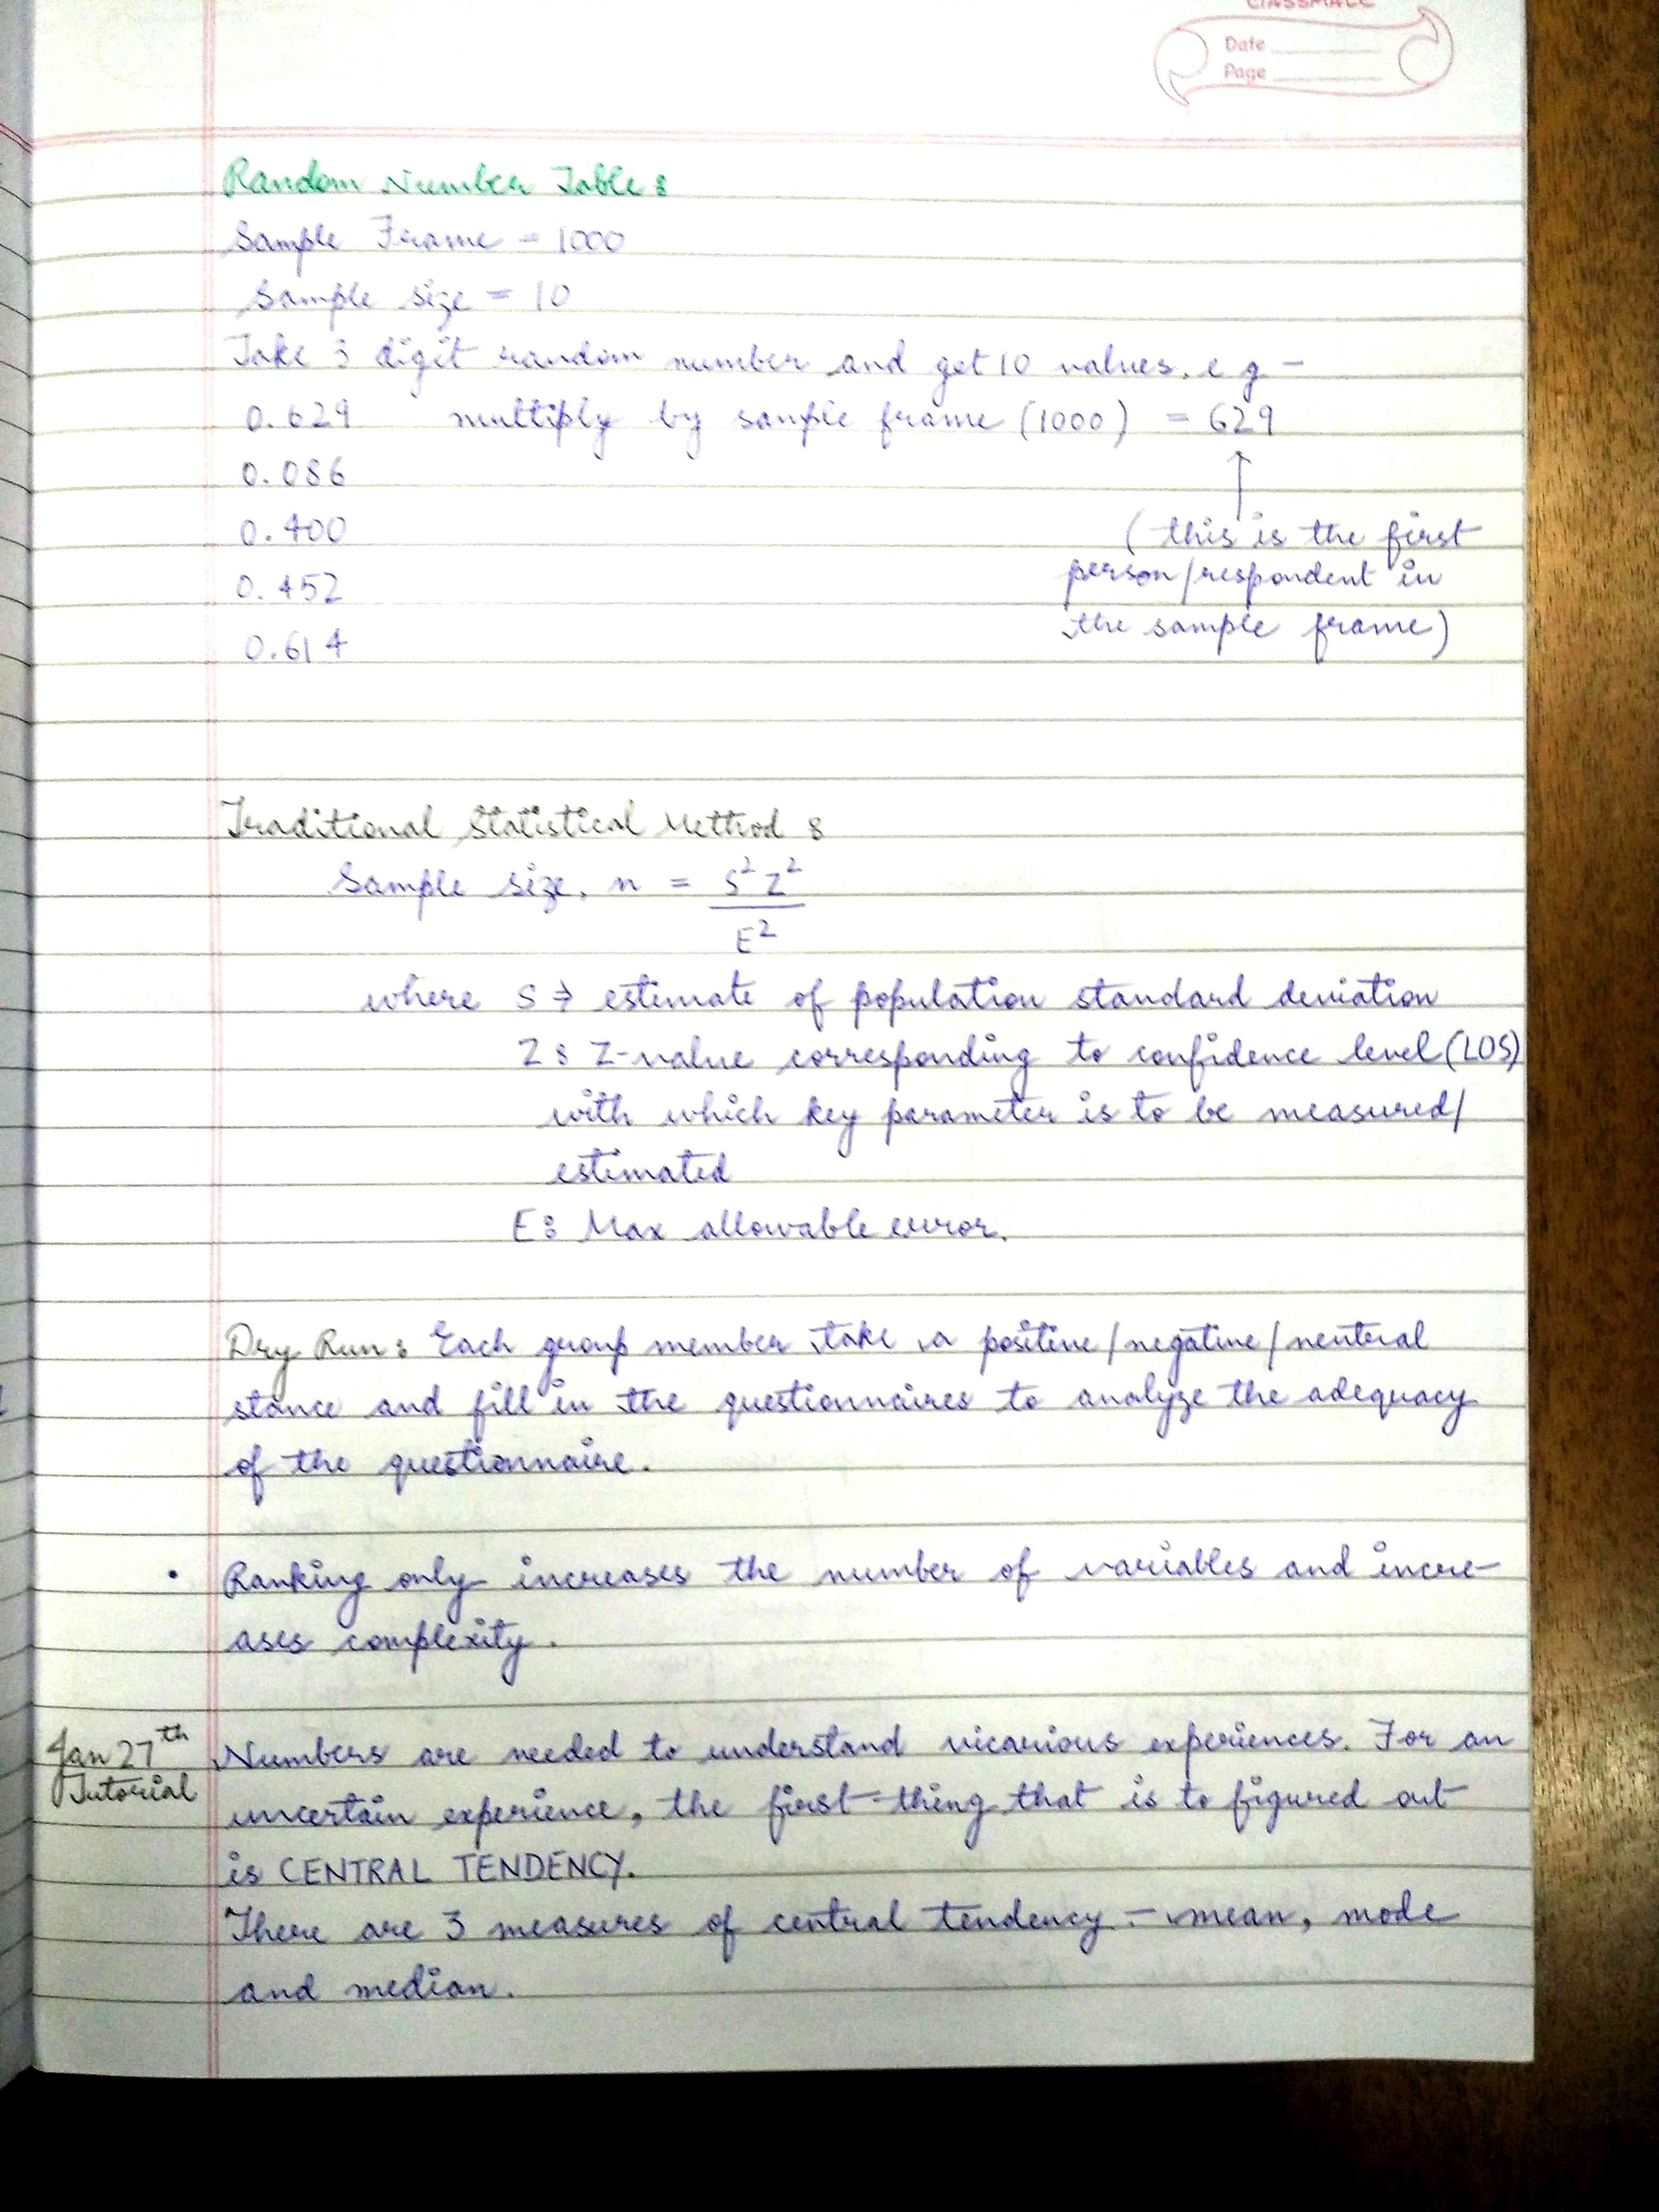 classmate
Date
Page
Random Number Table :
Sample Frame = 1000
Sample size = 10
Take 3 digit random number and get 10 values. e g -
0.629 multiply by sample frame (1000) = 629
0.086
0.400
0.452
0.614
(this is the first
person/respondent in
the sample frame)
Traditional Statistical Method :
Sample size, n = S² Z²
E²
where S ⇒ estimate of population standard deviation
Z : Z-value corresponding to confidence level (LOS)
with which key parameter is to be measured/
estimated
E : Max allowable error.
Dry Run : Each group member take a positive/negative/neutral
stance and fill in the questionnaires to analyze the adequacy
of the questionnaire.
• Ranking only increases the number of variables and incre-
ases complexity.
Jan 27th
Tutorial
Numbers are needed to understand vicarious experiences. For an
uncertain experience, the first thing that is to figured out
is CENTRAL TENDENCY.
There are 3 measures of central tendency - mean, mode
and median.